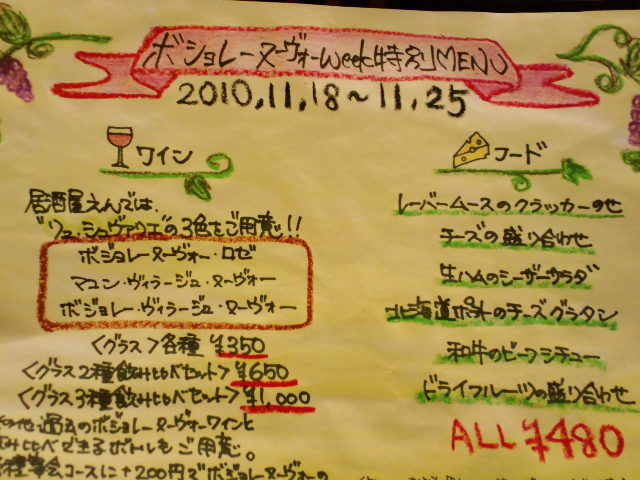 ボジョレーヌーヴォーweek特別MENU
2010.11.18～11.25
ワイン
居酒屋えんでは、
の3色をご用意!!
ボジョレーヌーヴォー・ロゼ
マコン・ヴィラージュ・ヌーヴォー
ボジョレー・ヴィラージュ・ヌーヴォー
〈グラス〉各種 ¥350
〈グラス2種飲み比べセット〉¥650
〈グラス3種飲み比べセット〉¥1,000
その他過去のボジョレーヌーヴォーワインと
飲み比べできるボトルもご用意。
各種宴会コースに+200円でボジョレーヌーヴォーの
フード
レバームースのクラッカーのせ
チーズの盛り合わせ
生ハムのシーザーサラダ
北海道ポテトのチーズグラタン
和牛のビーフシチュー
ドライフルーツの盛り合わせ
ALL ¥480